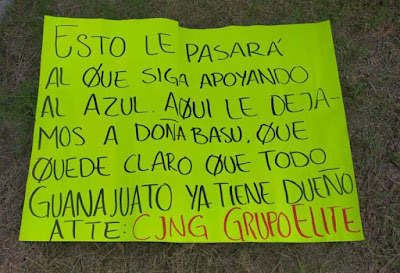 ESTO LE PASARÁ
AL QUE SIGA APOYANDO
AL AZUL. AQUI LE DEJA-
MOS A DOÑA BASU, QUE
QUEDE CLARO QUE TODO
GUANAJUATO YA TIENE DUEÑO
ATTE: CJNG GRUPO ELITE